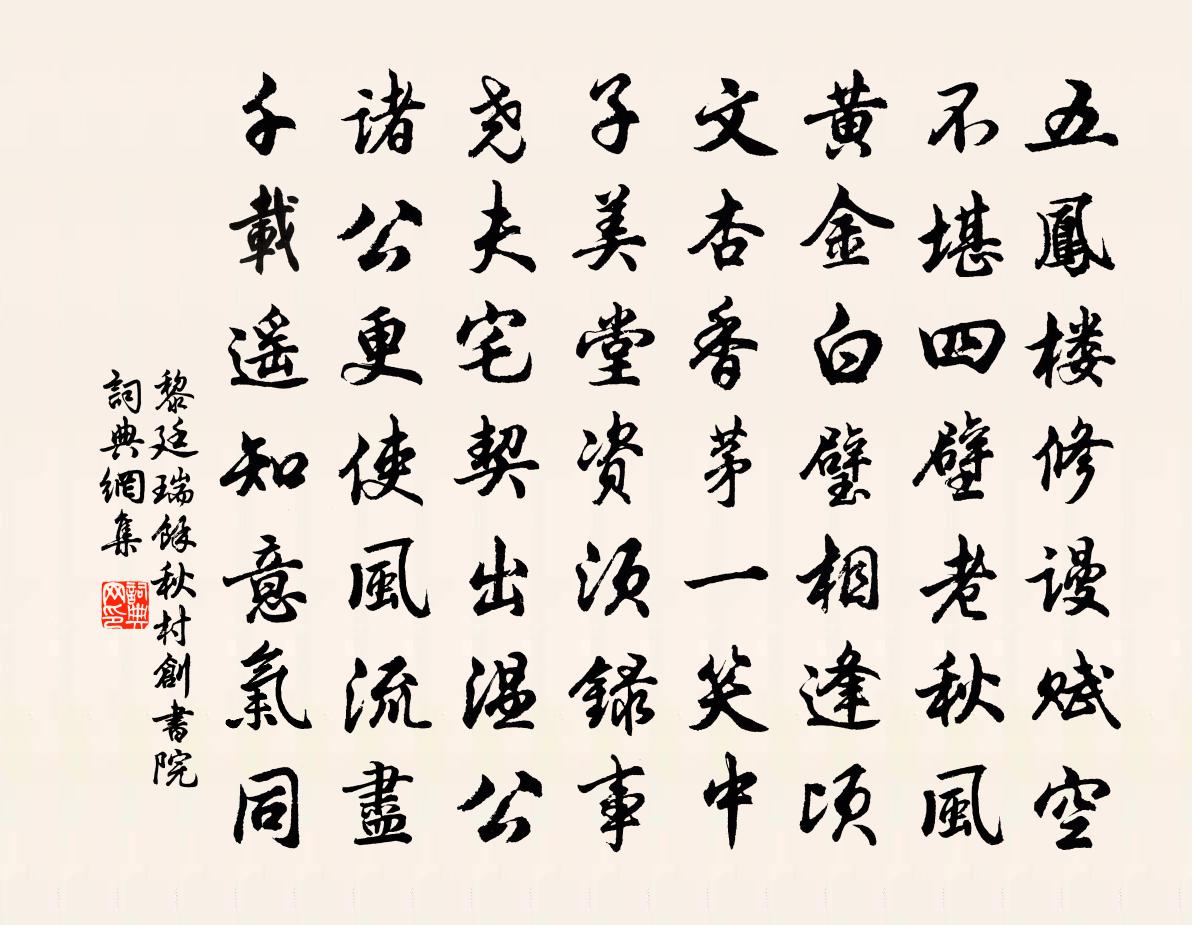 五鳳楼修謾赋空
不堪四壁老秋風
黄金白璧相逢顷
文杏香茅一笑中
子美堂资须録事
尧夫宅契出温公
诸公更使風流盡
千載遥知意氣同
黎廷瑞馀秋村創書院
詞典網集
詞典
网印